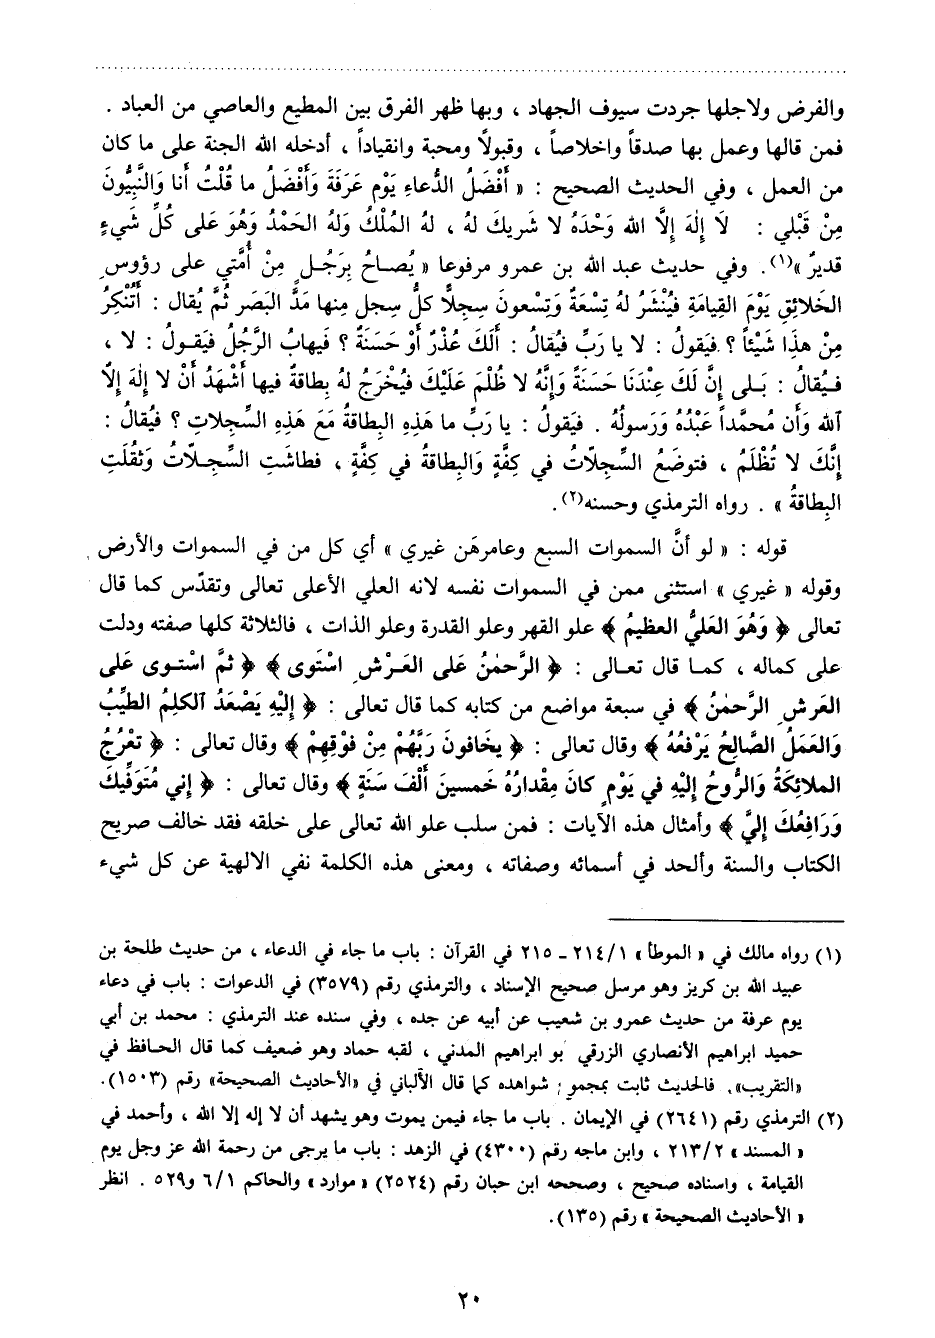 والفرض ولاجلها جردت سيوف الجهاد ، وبها ظهر الفرق بين المطيع والعاصي من العباد .
فمن قالها وعمل بها صدقاً واخلاصاً ، وقبولاً ومحبة وانقياداً ، أدخله الله الجنة على ما كان
من العمل ، وفي الحديث الصحيح : « أَفْضَلُ الدُّعاءِ يَوْم عَرَفَةَ وَأَفْضَلُ ما قُلْتُ أنا وَالنَّبِيُّونَ
مِنْ قَبْلي : لَا إِلَهَ إِلاَّ الله وَحْدَهُ لا شَريكَ لهُ ، لهُ المُلْكُ وَلهُ الحَمْدُ وَهُوَ عَلى كُلِّ شَيءٍ
قديرٌ »(١). وفي حديث عبد الله بن عمرو مرفوعا « يُصاحُ بِرَجُلٍ مِنْ أُمَّتي على رؤوسِ
الخَلائِقِ يَوْمَ القِيامَةِ فَيُنْشَرُ لهُ تِسْعَةٌ وَتِسْعونَ سِجِلاًّ كلُّ سجل منها مَدَّ البَصَر ثُمَّ يُقال : أَتُنْكِرُ
مِنْ هذَا شَيْئاً ؟ فيَقولُ : لا يا رَبِّ فيُقالُ : أَلَكَ عُذْرٌ أَوْ حَسَنَةٌ ؟ فيهابُ الرَّجُلُ فيَقولُ : لا ،
فيُقالُ : بَلى إِنَّ لكَ عِنْدَنَا حَسَنَةً وَإِنَّهُ لا ظُلْمَ عَلَيْكَ فيُخْرَجُ لهُ بِطاقَةٌ فيها أَشْهَدُ أَنْ لا إِلٰهَ إِلاَّ
ٱلله وَأَن مُحمَّداً عَبْدُهُ وَرَسولُهُ . فيَقولُ : يا رَبِّ ما هَذِهِ البِطاقَةُ مَعَ هَذِهِ السِّجِلاتِ ؟ فيُقالُ :
إِنَّكَ لا تُظْلَمُ ، فتوضَعُ السِّجِلاَّتُ في كِفَّةٍ وَالبِطاقَةُ في كِفَّةٍ ، فطاشَتِ السِّجِلاَّتُ وَثَقُلَتِ
البِطاقَةُ » . رواه الترمذي وحسنه(٢).
قوله : « لو أنَّ السموات السبع وعامرهَن غيري » أي كل من في السموات والأرض
وقوله « غيري » استثنى ممن في السموات نفسه لانه العلي الأعلى تعالى وتقدّس كما قال
تعالى ﴿ وَهُوَ العَليُّ العظيمُ ﴾ علو القهر وعلو القدرة وعلو الذات ، فالثلاثة كلها صفته ودلت
على كماله ، كما قال تعالى : ﴿ الرَّحمٰنُ عَلى العَرْشِ اسْتَوى ﴾ ﴿ ثمَّ اسْتوى عَلى
العَرشِ الرَّحمٰنُ ﴾ في سبعة مواضع من كتابه كما قال تعالى : ﴿ إِليْهِ يَصْعَدُ ٱلكلِمُ الطيِّبُ
وَالعَمَلُ الصَّالِحُ يَرْفعُهُ ﴾ وقال تعالى : ﴿ يخَافونَ رَبَّهُمْ مِنْ فوْقِهِمْ ﴾ وقال تعالى : ﴿ تعْرُجُ
الملائِكَةُ وَالرُّوحُ إِليْهِ في يَوْمٍ كانَ مِقْدارُهُ خَمسينَ أَلْفَ سَنَةٍ ﴾ وقال تعالى : ﴿ إِني مُتَوَفِّيكَ
وَرَافِعُكَ إِليَّ ﴾ وأمثال هذه الآيات : فمن سلب علو الله تعالى على خلقه فقد خالف صريح
الكتاب والسنة وألحد في أسمائه وصفاته ، ومعنى هذه الكلمة نفي الالهية عن كل شيء
(١) رواه مالك في « الموطأ » ٢١٤/١ ـ ٢١٥ في القرآن : باب ما جاء في الدعاء ، من حديث طلحة بن
عبيد الله بن كريز وهو مرسل صحيح الإسناد ، والترمذي رقم (٣٥٧٩) في الدعوات : باب في دعاء
يوم عرفة من حديث عمرو بن شعيب عن أبيه عن جده ، وفي سنده عند الترمذي : محمد بن أبي
حميد ابراهيم الأنصاري الزرقي بو ابراهيم المدني ، لقبه حماد وهو ضعيف كما قال الحافظ في
«التقريب». فالحديث ثابت بمجموع شواهده كما قال الألباني في «الأحاديث الصحيحة» رقم (١٥٠٣).
(٢) الترمذي رقم (٢٦٤١) في الإيمان . باب ما جاء فيمن يموت وهو يشهد أن لا إله إلا الله ، وأحمد في
« المسند » ٢١٣/٢ ، وابن ماجه رقم (٤٣٠٠) في الزهد : باب ما يرجى من رحمة الله عز وجل يوم
القيامة ، واسناده صحيح ، وصححه ابن حبان رقم (٢٥٢٤) «موارد» والحاكم ٦/١ و٥٢٩ . انظر
« الأحاديث الصحيحة » رقم (١٣٥).
٢٠